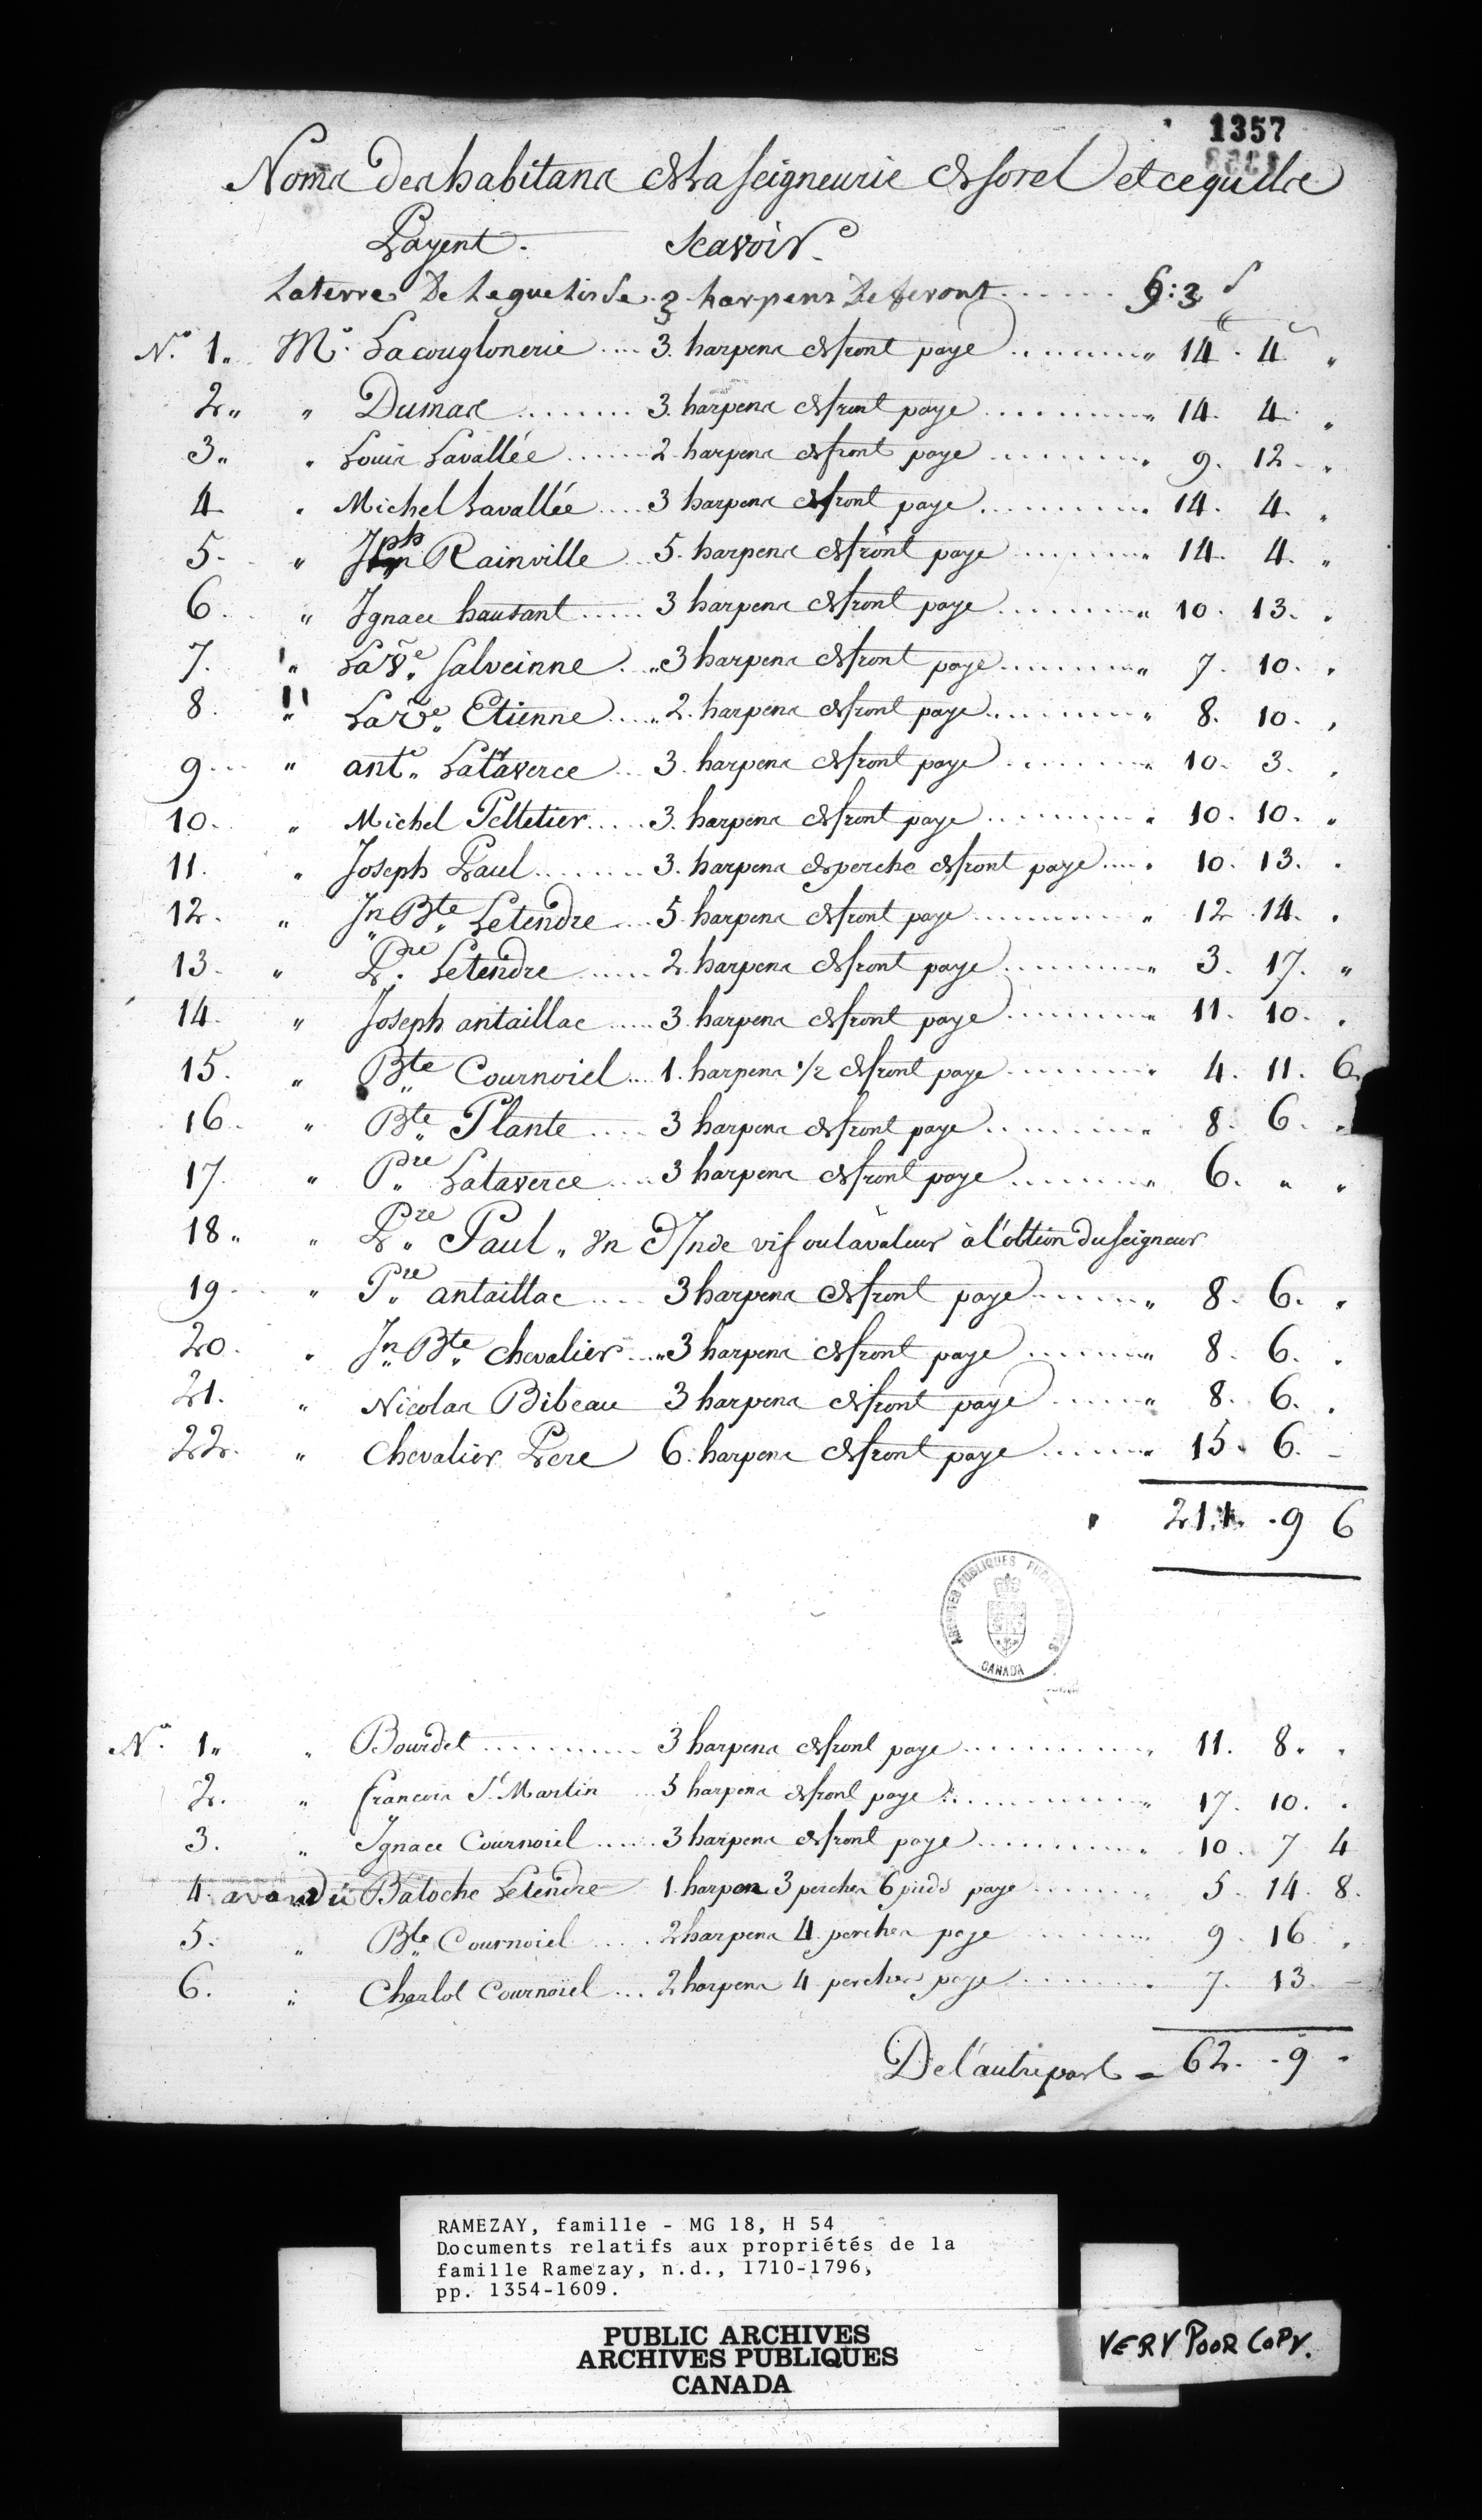 1357
Noms des habitans de La seigneurie de sorel et ce quils
Payent. Scavoir
La terre De Leguelinde 3 harpens De feront 9:3
N.º 1. Mr. Lacouglonerie .... 3. harpens de front paye ........ " 14. 4. "
2. " Dumas ........ 3. harpens de front paye ........ " 14. 4. "
3. " Louis Lavallée ...... 2 harpens de front paye ........ " 9. 12. "
4 " Michel Lavallée .... 3 harpens de front paye ........ " 14. 4. "
5. " Jph Rainville ... 5. harpens de front paye ........ " 14. 4. "
6. " Ignace hautant ..... 3 harpens de front paye ........ " 10. 13. "
7. " La Ve. Salveinne .. 3 harpens de front paye ........ " 7. 10. "
8. " La ve. Etienne .... 2. harpens de front paye ........ " 8. 10. "
9 ... " ant. Lataverce ... 3. harpens de front paye ........ " 10. 3. "
10. " Michel Pelletier .... 3. harpens de front paye ........ " 10. 10. "
11. " Joseph Paul ........ 3. harpens de perche de front paye .... " 10. 13. "
12. " Jn. Bte. Letendre .... 5 harpens de front paye ........ " 12. 14. "
13. " Pre. Letendre ...... 2 harpens de front paye ........ " 3. 17. "
14. " Joseph antaillac ..... 3 harpens de front paye ........ " 11. 10. "
15. " Bte Cournoiel ... 1. harpens 1/2 de front paye ........ " 4. 11. 6
16. " Bte. Plante ..... 3 harpens de front paye ........ " 8. 6. "
17. " Pre. Lataverce .... 3 harpens de front paye ........ " 6. " "
18. " Pre. Paul " Un D'Inde vif ou la valeur à l'obtion du seigneur
19. " Pre. antaillac .... 3 harpens de front paye ...... " 8. 6. "
20. " Jn. Bte. chevalier .... 3 harpens de front paye ...... " 8. 6. "
21. " Nicolas Bibeau 3 harpens de front paye ...... " 8. 6. "
22. " Chevalier Pere 6. harpens de front paye ...... " 15. 6. -
" 211. 9 6
ARCHIVES PUBLIQUES PUBLIC ARCHIVES
CANADA
N.º 1. " Bourdet .......... 3 harpens de front paye ........ " 11. 8. "
2. " francois St. Martin 5 harpens de front paye ........ " 17. 10. "
3. " Ignace Cournoiel ..... 3 harpens de front paye ........ " 10. 7 4
4. Batoche Letendre 1. harpen 3 perches 6 pieds paye ...... " 5. 14. 8.
5. " Bte. Cournoiel .... 2 harpens 4 perches paye ...... " 9. 16 "
6. " Charlot Cournoiel ... 2 harpens 4 perches paye ...... " 7. 13. -
De l'autre part = 62. 9 "
RAMEZAY, famille - MG 18, H 54
Documents relatifs aux propriétés de la
famille Ramezay, n.d., 1710-1796,
pp. 1354-1609.
PUBLIC ARCHIVES
ARCHIVES PUBLIQUES
CANADA
VERY POOR COPY.